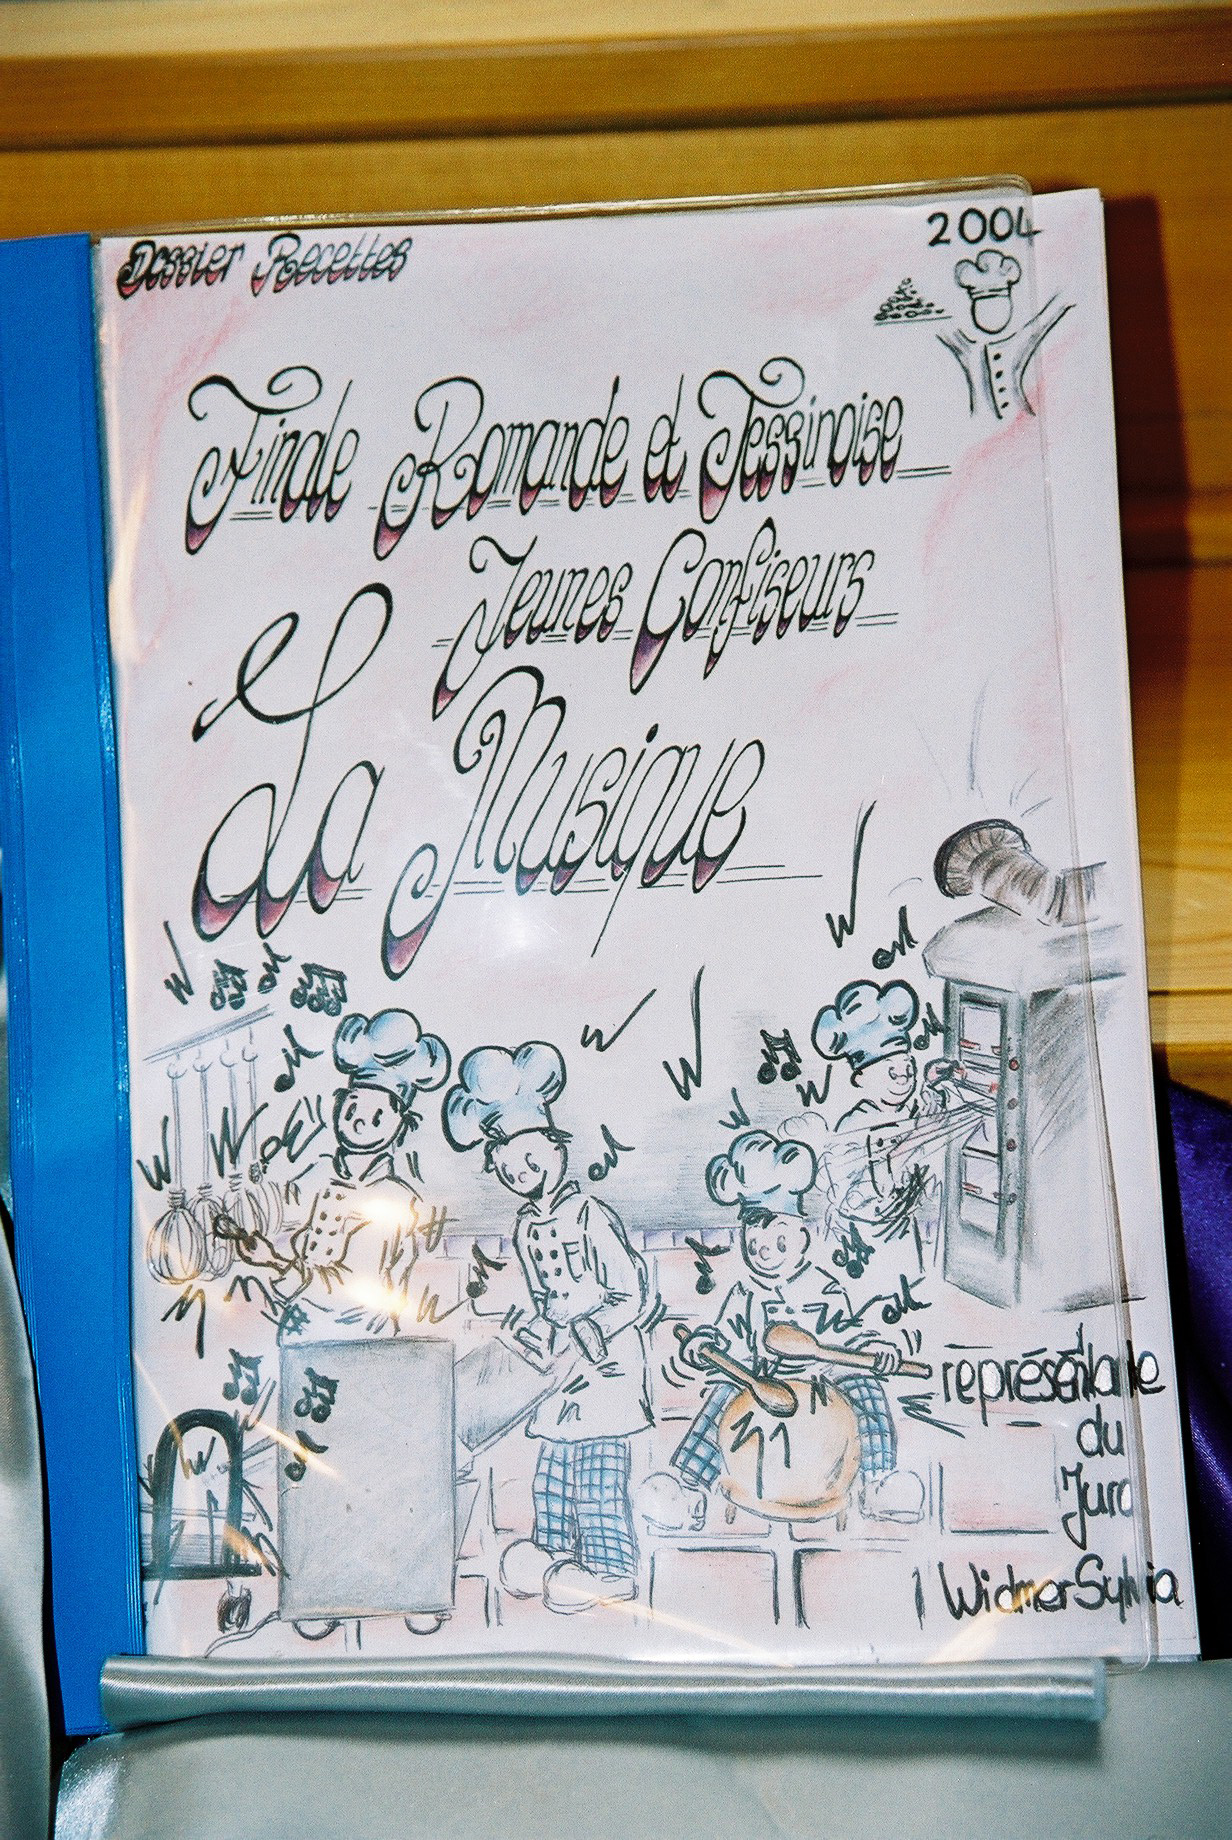 Dossier Recettes
2004
Finale Romande et Tessinoise
Jeunes Confiseurs
La Musique
représentante
du
Jura
Widmer Sylvia